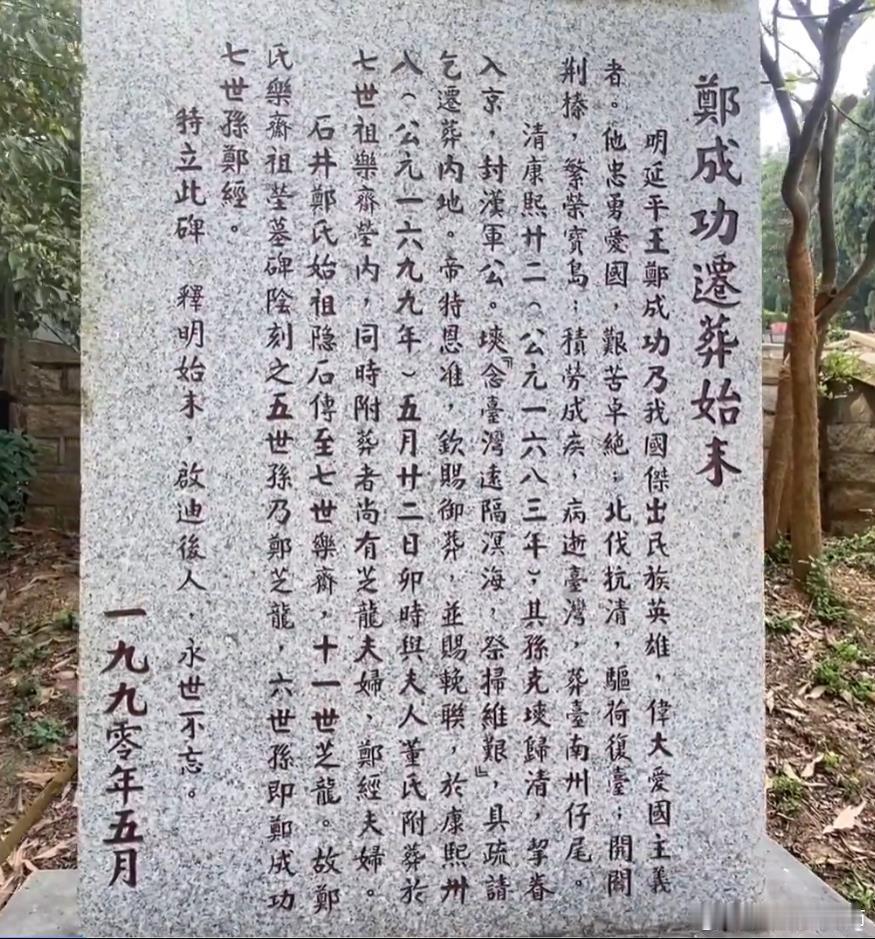 鄭成功遷葬始末
明延平王鄭成功乃我國傑出民族英雄，偉大愛國主義
者。他忠勇愛國，艱苦卓絶；北伐抗清，驅荷復臺；開闢
荆榛，繁榮寶島；積勞成疾，病逝臺灣，葬臺南州仔尾。
清康熙廿二（公元一六八三年），其孫克塽歸清，挈眷
入京，封漢軍公。塽『念臺灣遠隔溟海，祭掃維艱』，具疏請
乞遷葬内地。帝特恩准，欽賜御葬，並賜輓聯，於康熙卅
八（公元一六九九年）五月廿二日卯時與夫人董氏附葬於
七世祖樂齋塋内，同時附葬者尚有芝龍夫婦，鄭經夫婦。
石井鄭氏始祖隐石傳至七世樂齋，十一世芝龍。故鄭
氏樂齋祖塋墓碑陰刻之五世孫乃鄭芝龍，六世孫即鄭成功
七世孫鄭經。
特立此碑 釋明始末，啟迪後人，永世不忘。
一九九零年五月